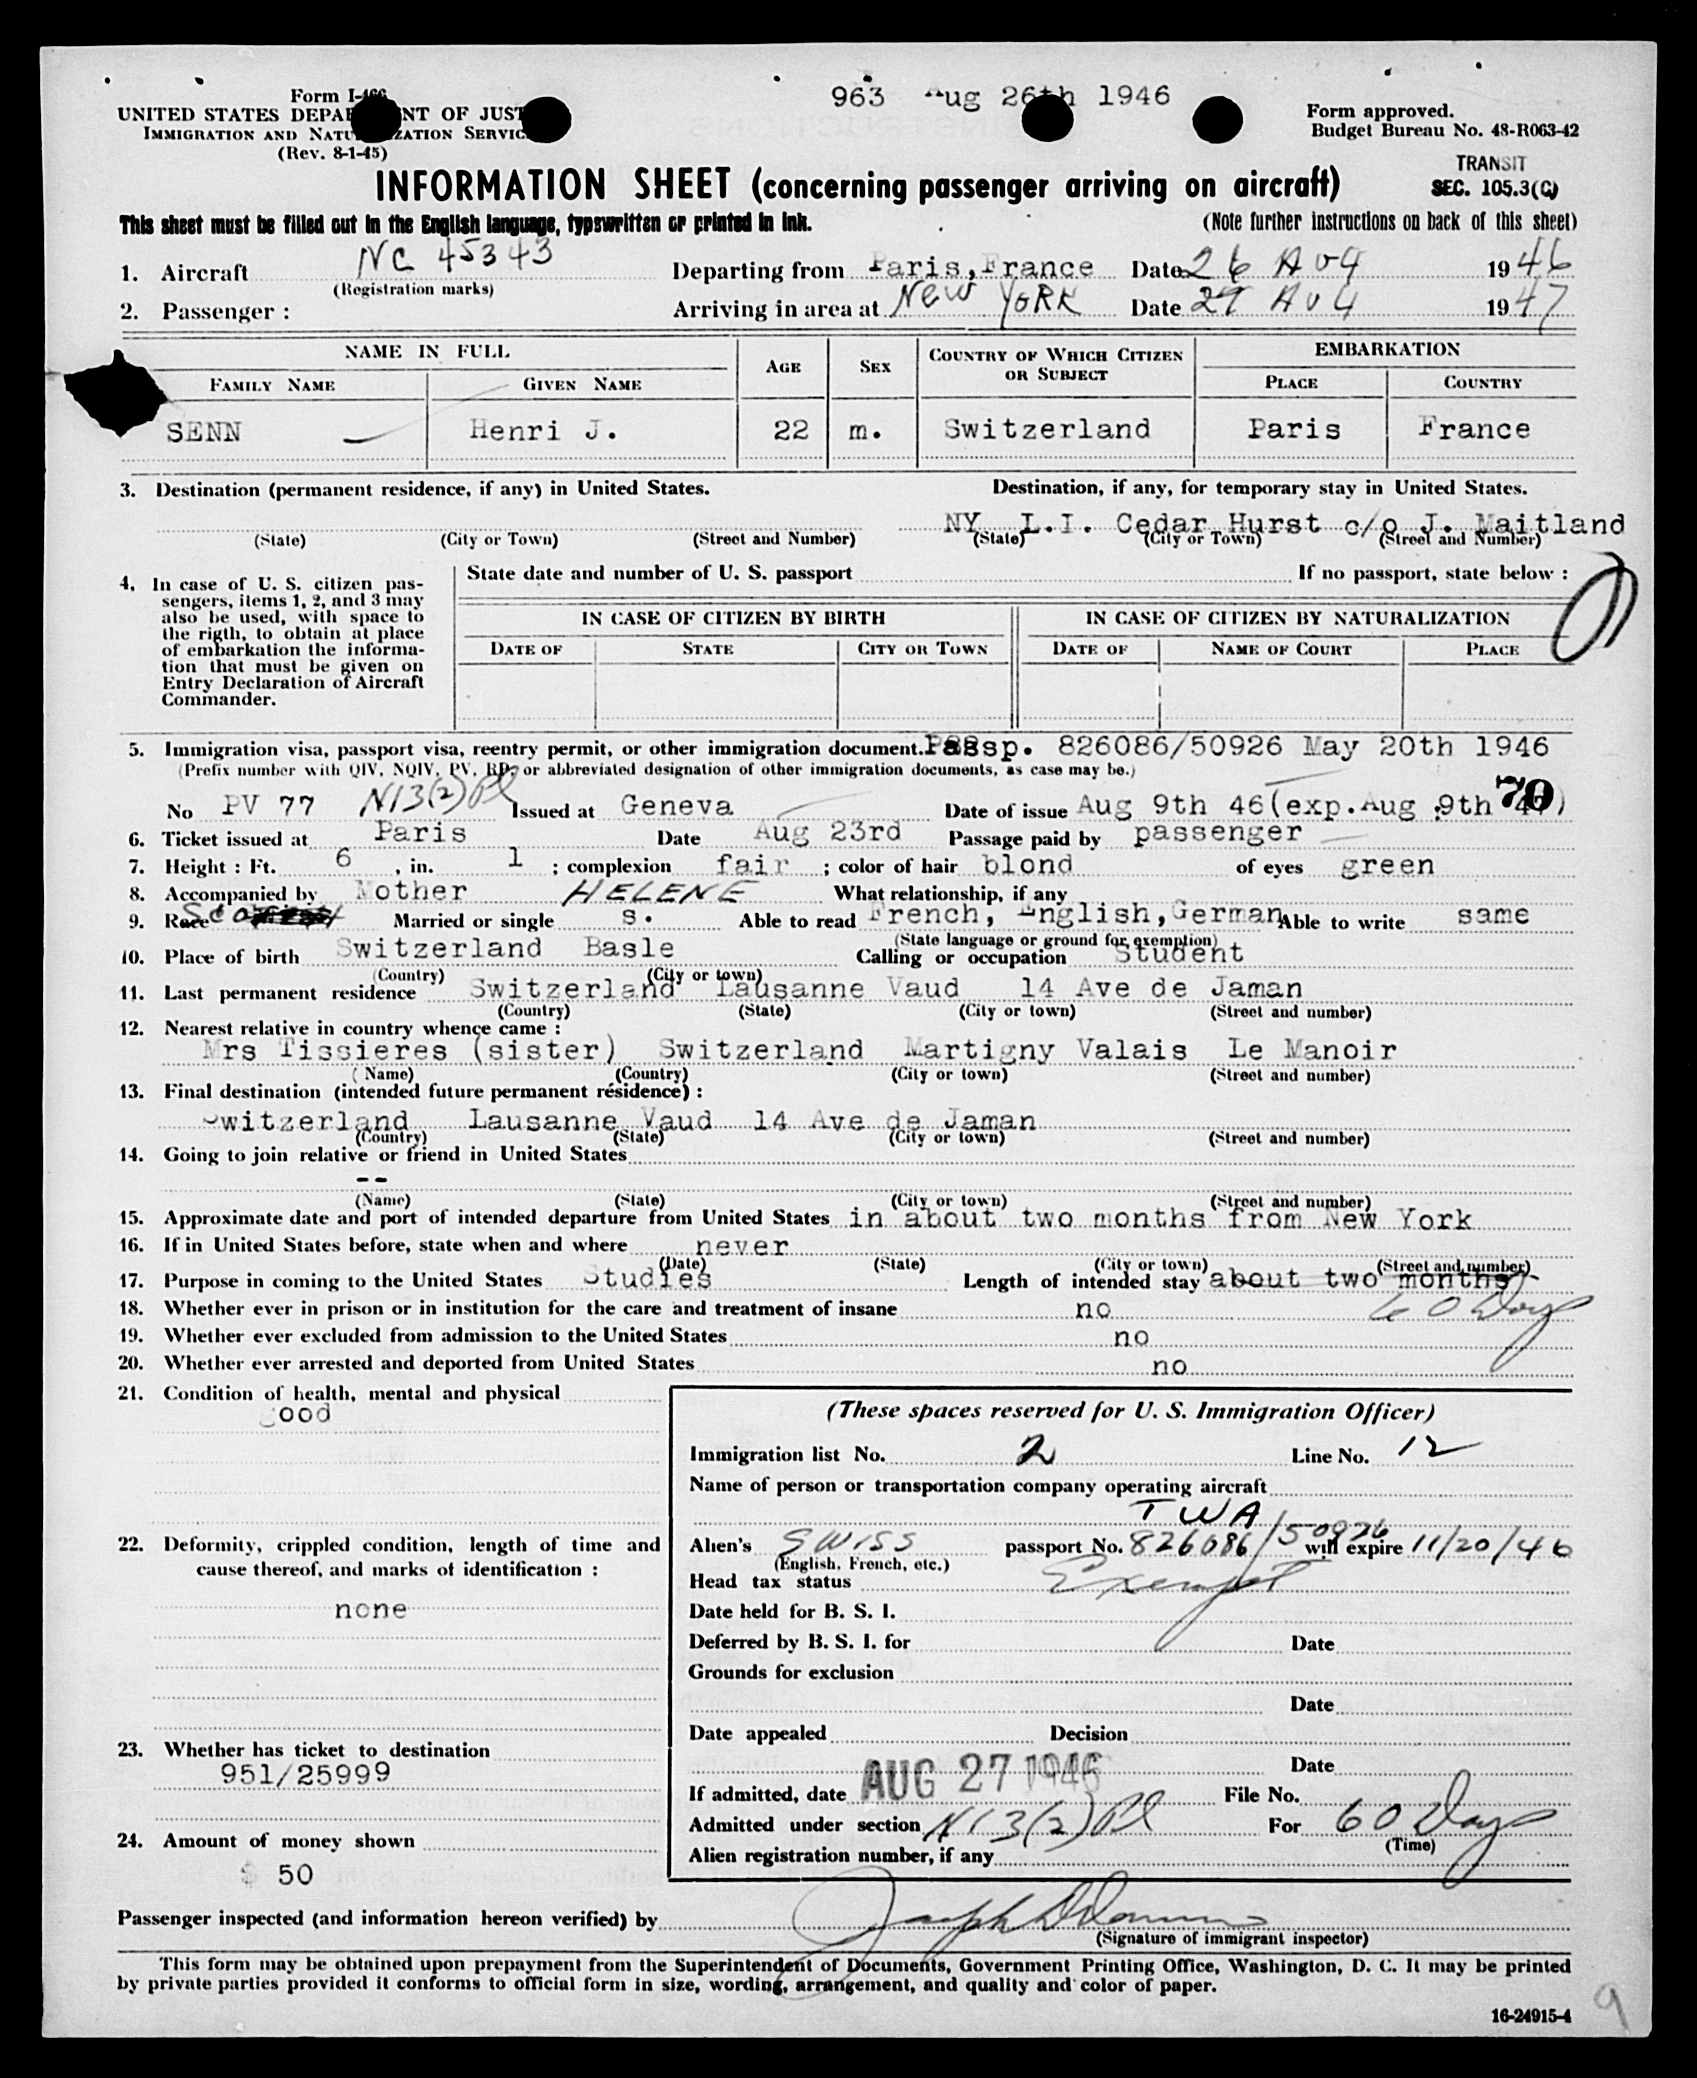 963 Aug 26th 1946
Form I-466
UNITED STATES DEPARTMENT OF JUSTICE
IMMIGRATION AND NATURALIZATION SERVICE
(Rev. 8-1-45)
Form approved.
Budget Bureau No. 48-R063-42
TRANSIT
SEC. 105.3(C)
INFORMATION SHEET (concerning passenger arriving on aircraft)
This sheet must be filled out in the English language, typewritten or printed in ink.
(Note further instructions on back of this sheet)
1. Aircraft NC 45343 Departing from Paris, France Date 26 AUG 1946
(Registration marks)
2. Passenger : Arriving in area at NEW YORK Date 27 AUG 1947
NAME IN FULL AGE SEX COUNTRY OF WHICH CITIZEN OR SUBJECT EMBARKATION
FAMILY NAME GIVEN NAME PLACE COUNTRY
SENN Henri J. 22 m. Switzerland Paris France
3. Destination (permanent residence, if any) in United States. Destination, if any, for temporary stay in United States.
NY L.I. Cedar Hurst c/o J. Maitland
(State) (City or Town) (Street and Number) (State) (City or Town) (Street and Number)
4. In case of U. S. citizen pas-
sengers, items 1, 2, and 3 may
also be used, with space to
the rigth, to obtain at place
of embarkation the informa-
tion that must be given on
Entry Declaration of Aircraft
Commander.
State date and number of U. S. passport If no passport, state below :
IN CASE OF CITIZEN BY BIRTH IN CASE OF CITIZEN BY NATURALIZATION
DATE OF STATE CITY OR TOWN DATE OF NAME OF COURT PLACE
5. Immigration visa, passport visa, reentry permit, or other immigration document. Passp. 826086/50926 May 20th 1946
(Prefix number with QIV, NQIV, PV, RP, or abbreviated designation of other immigration documents, as case may be.)
70
No PV 77 N13(2)Pl Issued at Geneva Date of issue Aug 9th 46(exp.Aug 9th 47)
6. Ticket issued at Paris Date Aug 23rd Passage paid by passenger
7. Height : Ft. 6 , in. 1 ; complexion fair ; color of hair blond of eyes green
8. Accompanied by Mother HELENE What relationship, if any
9. Race Married or single s. Able to read French, English, German Able to write same
(State language or ground for exemption)
10. Place of birth Switzerland Basle Calling or occupation Student
(Country) (City or town)
11. Last permanent residence Switzerland Lausanne Vaud 14 Ave de Jaman
(Country) (State) (City or town) (Street and number)
12. Nearest relative in country whence came :
Mrs Tissieres (sister) Switzerland Martigny Valais Le Manoir
(Name) (Country) (City or town) (Street and number)
13. Final destination (intended future permanent résidence) :
Switzerland Lausanne Vaud 14 Ave de Jaman
(Country) (State) (City or town) (Street and number)
14. Going to join relative or friend in United States
--
(Name) (State) (City or town) (Street and number)
15. Approximate date and port of intended departure from United States in about two months from New York
16. If in United States before, state when and where never
(Date) (State) (City or town) (Street and number)
17. Purpose in coming to the United States Studies Length of intended stay about two months
60 Days
18. Whether ever in prison or in institution for the care and treatment of insane no
19. Whether ever excluded from admission to the United States no
20. Whether ever arrested and deported from United States no
21. Condition of health, mental and physical
Good
22. Deformity, crippled condition, length of time and
cause thereof, and marks of identification :
none
23. Whether has ticket to destination
951/25999
24. Amount of money shown
$ 50
(These spaces reserved for U. S. Immigration Officer)
Immigration list No. 2 Line No. 12
Name of person or transportation company operating aircraft
TWA
Alien's SWISS passport No. 826086/50926 will expire 11/20/46
(English, French, etc.)
Head tax status Exempt
Date held for B. S. I.
Deferred by B. S. I. for Date
Grounds for exclusion
Date
Date appealed Decision
Date
If admitted, date AUG 27 1946 File No.
Admitted under section N13(2)Pl For 60 Days
(Time)
Alien registration number, if any
Passenger inspected (and information hereon verified) by
(Signature of immigrant inspector)
This form may be obtained upon prepayment from the Superintendent of Documents, Government Printing Office, Washington, D. C. It may be printed
by private parties provided it conforms to official form in size, wording, arrangement, and quality and color of paper.
16-24915-4
9